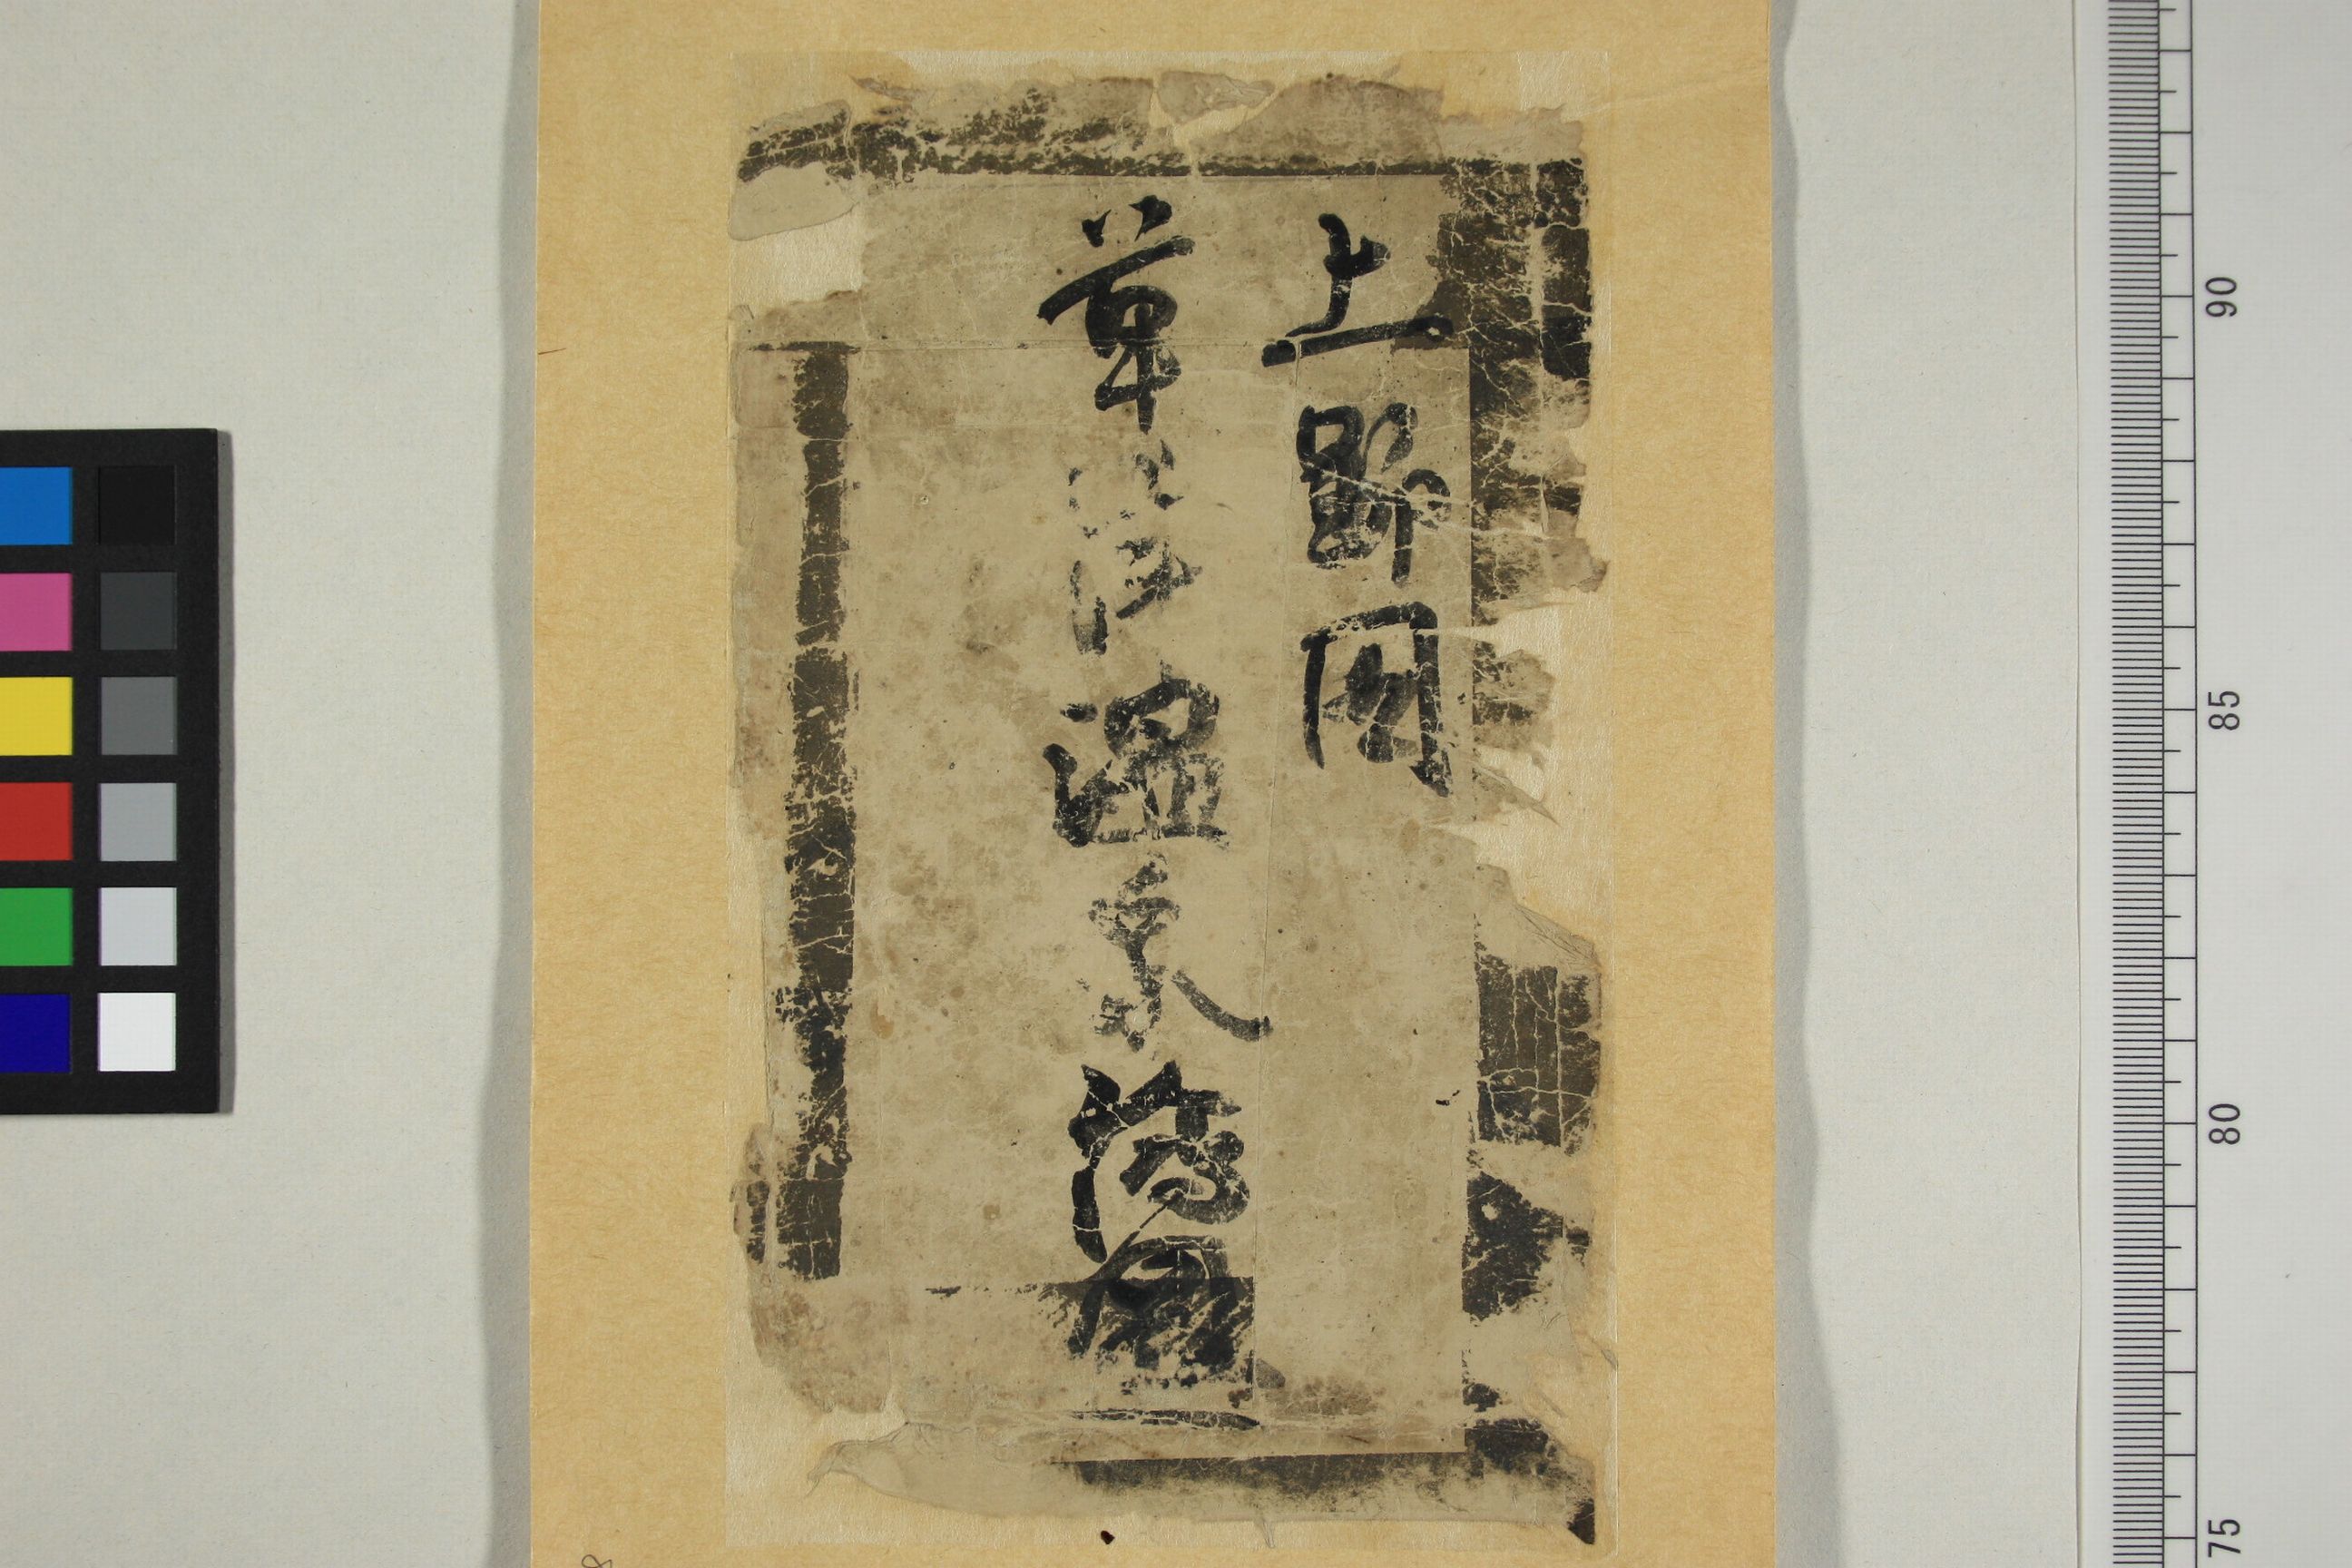 上野國
草津温泉
90
85
80
75
8